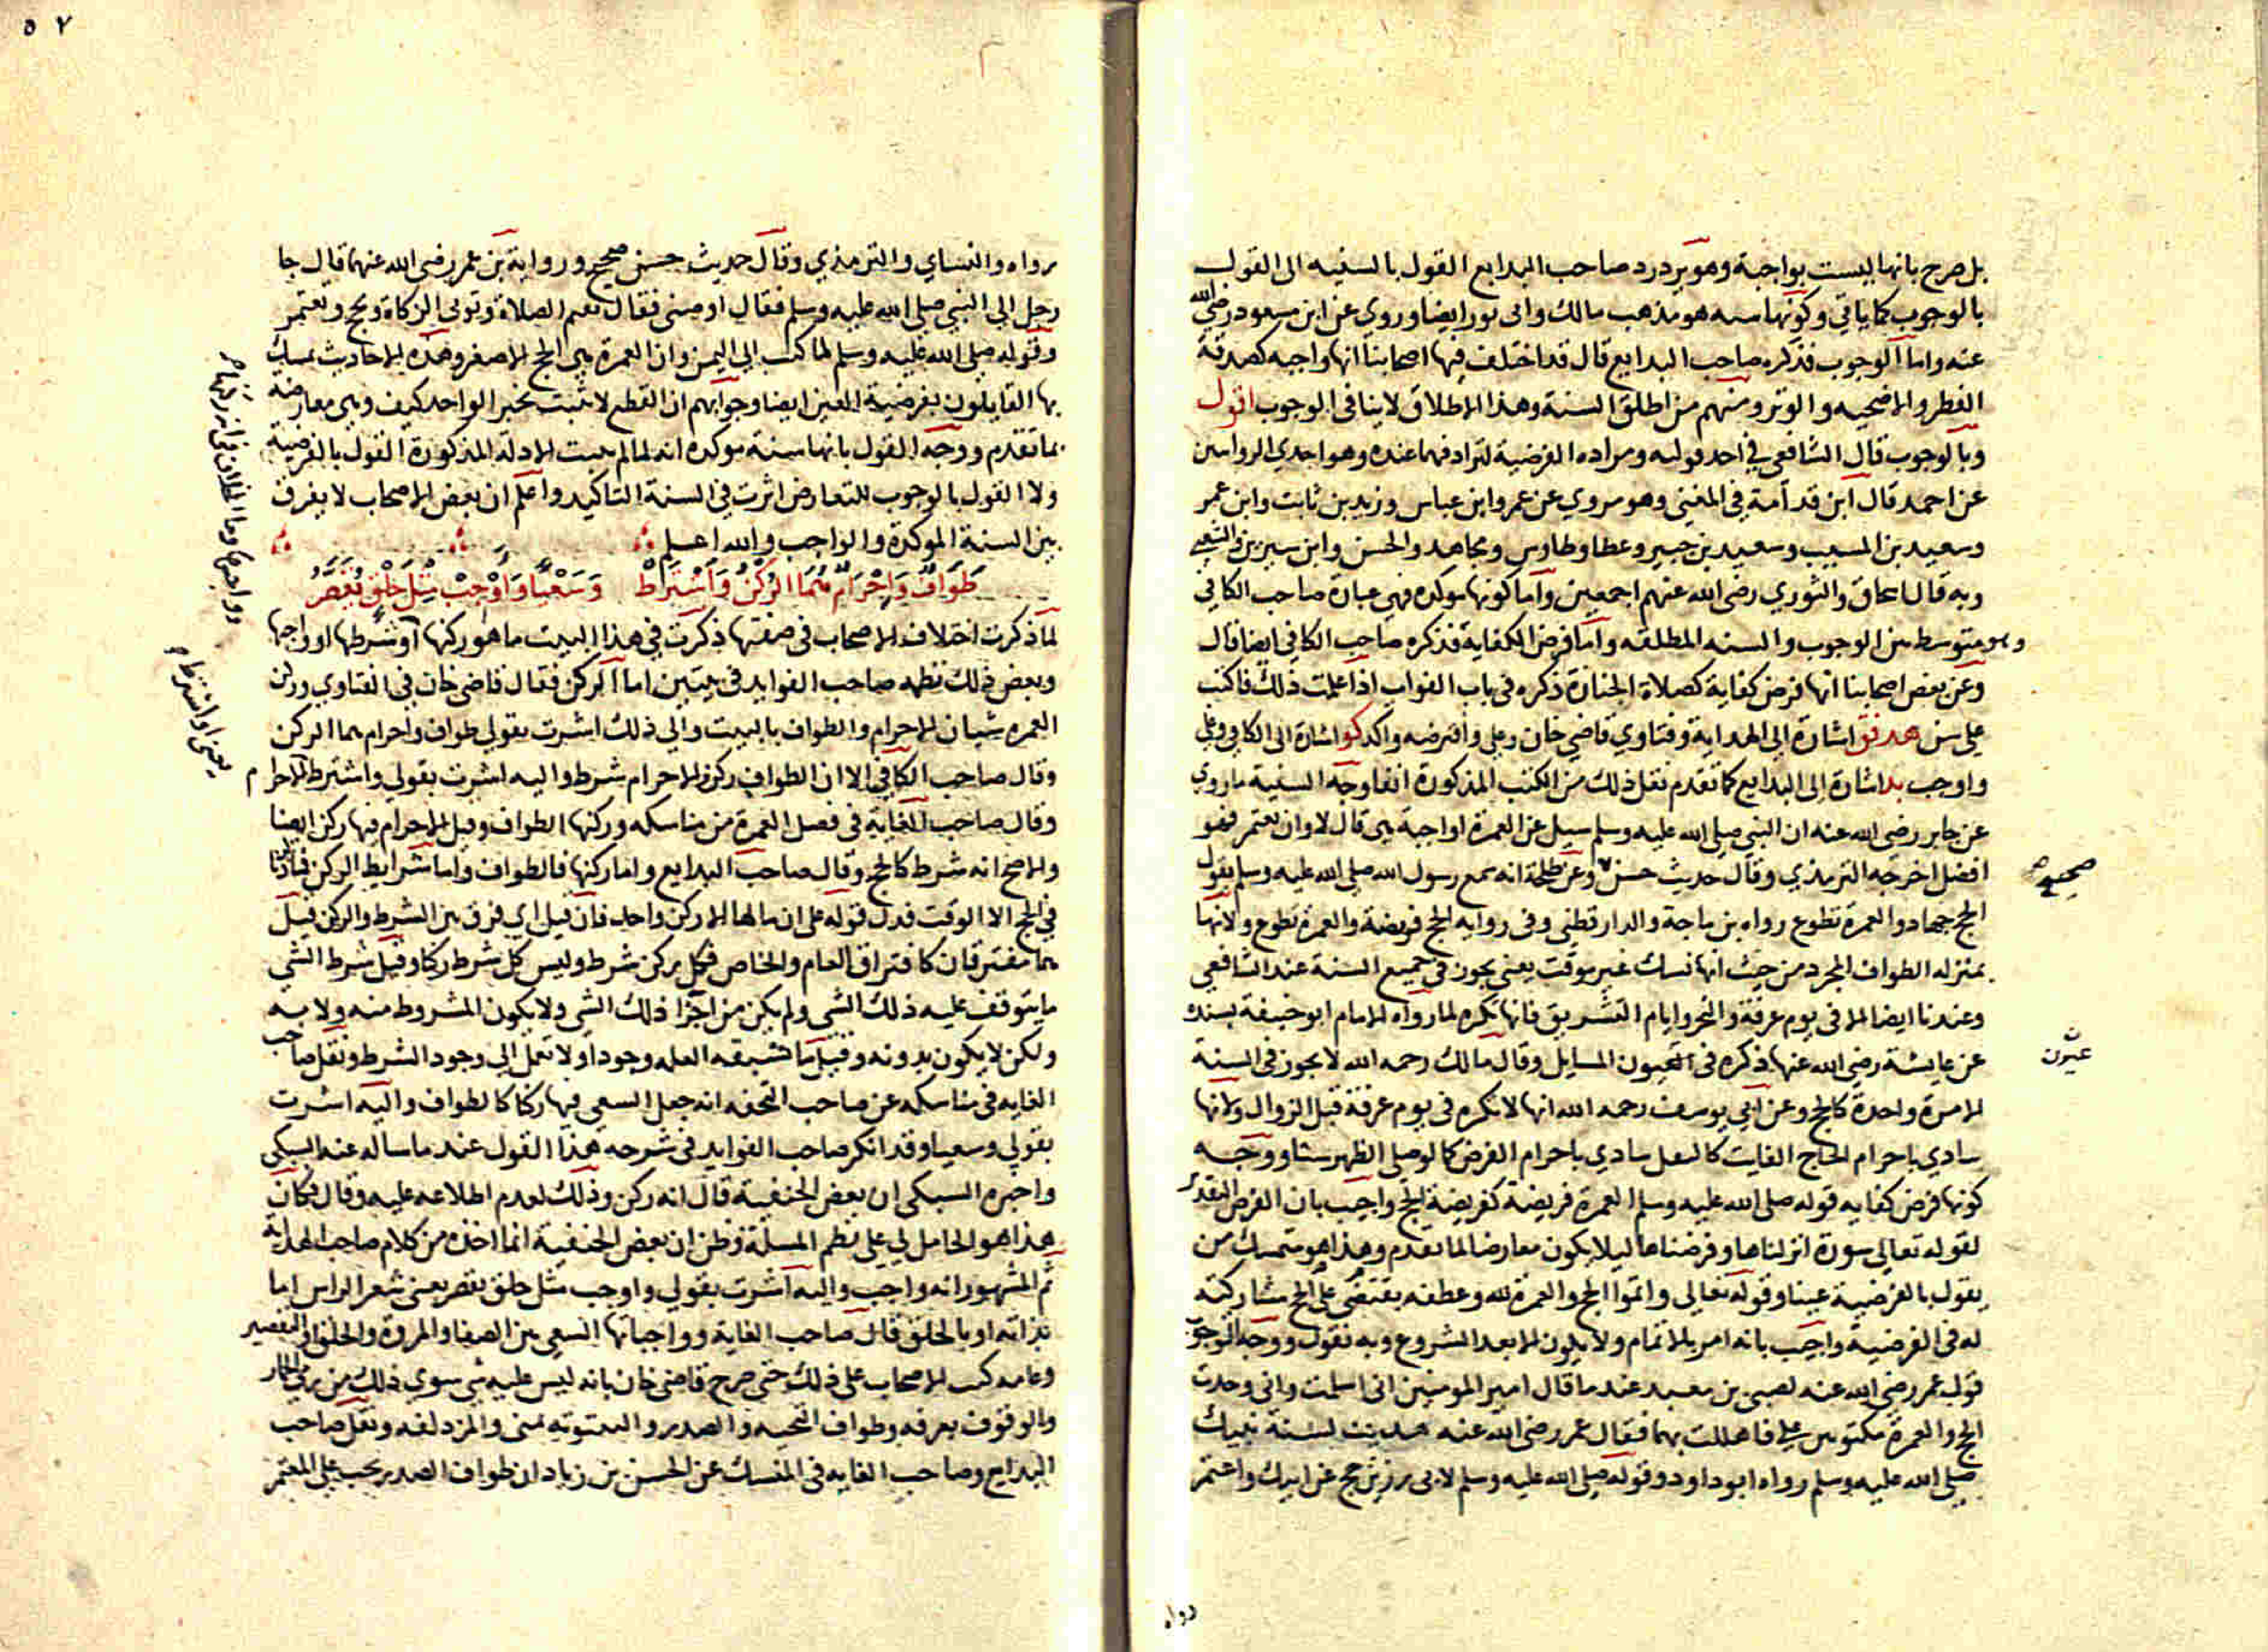 بل صرح بانها ليست بواجبة وهو يرد رد صاحب البدايع القول بالسنيه الى القول
بالوجوب كما ياتي وكونها سنه هو مذهب مالك وابي ثور ايضا وروي عن ابن مسعود رضي الله
عنه واما الوجوب فذكره صاحب البدايع قال قد اختلف فيها اصحابنا انها واجبه كصدقة
الفطر والاضحيه والوتر ومنهم من اطلق السنة وهذا الاطلاق لا ينافي الوجوب اقول
وبالوجوب قال الشافعي في احد قوليه ومراده الفرضية لترادفهما عنده وهو احدي الروايتين
عن احمد قال ابن قدامة في المغني وهو مروي عن عمر وابن عباس وزيد بن ثابت وابن عمر
وسعيد بن المسيب وسعيد بن جبير وعطا وطاوس ومجاهد والحسن وابن سيرين والشعبي
وبه قال اسحاق والثوري رضي الله عنهم اجمعين واما كونها موكده فهي عبارة صاحب الكافي
وهو متوسط بين الوجوب والسنه المطلقه واما فرض الكفاية فذكره صاحب الكافي ايضا قال
وعن بعض اصحابنا انها فرض كفاية كصلاة الجنازة ذكره في باب الفوات اذا علمت ذلك فاكتب
علي سن هد فق اشارة الي الهداية وفتاوي قاضي خان وعلي وافترضه واكد كو اشارة الى الكافي وعلي
واوجب بد اشارة الى البدايع كما تقدم نقل ذلك من الكتب المذكورة انفا وجه السنية ما روي
عن جابر رضي الله عنه ان النبي صلي الله عليه وسلم سيل عن العمرة اواجبة هي قال لا وان تعتمر فهو
افضل اخرجه الترمذي وقال حديث حسن وعن طلحة انه سمع رسول الله صلي الله عليه وسلم يقول
صحيح
الحج جهاد والعمرة تطوع رواه بن ماجة والدارقطني وفي روايه الحج فريضة والعمرة تطوع ولانها
بمنزله الطواف المجرد من حيث انها نسك غير موقت يعني يجوز في جميع السنة عند الشافعي
وعندنا ايضا الا في يوم عرفة والنحر وايام التشريق فانها تكره لما رواه الامام ابو حنيفة بسنده
عن عايشة رضي الله عنها ذكره في العيون المسايل وقال مالك رحمه الله لا يجوز في السنة
عيون
الا مرة واحدة كالحج وعن ابي يوسف رحمه الله انها لا تكره في يوم عرفة قبل الزوال ولانها
تتادي باحرام الحاج الفايت كالنفل يتادي باحرام الفرض كما لو صلي الظهر ستا ووجه
كونها فرض كفايه قوله صلى الله عليه وسلم العمرة فريضة كفريضة الحج واجيب بان الفرض التقدير
لقوله تعالى سورة انزلناها وفرضناها ليلا يكون معارضا لما تقدم وهذا هو متمسك من
يقول بالفرضية عينا وقوله تعالى واتموا الحج والعمرة لله وعطفه يقتضي على الحج مشاركته
له في الفرضية واجيب بانه امر بالاتمام ولا يكون الا بعد الشروع وبه نقول ووجه الوجوب
قول عمر رضي الله عنه لصبي بن معبد عندما قال امير المومنين اني اسلمت واني وجدت
الحج والعمرة مكتوبين علي فاهللت بهما فقال عمر رضي الله عنه هديت لسنة نبيك
صلي الله عليه وسلم رواه ابو داود وقوله صلي الله عليه وسلم لابي رزين حج عن ابيك واعتمر
رواه
٥٧
رواه والنساي والترمذي وقال حديث حسن صحيح ورواية بن عمر رضي الله عنهما قال جا
رجل الي النبي صلي الله عليه وسلم فقال اوصني فقال تقيم الصلاة وتوتي الزكاة وتحج وتعتمر
وقوله صلي الله عليه وسلم لما كتب الي اليمن وان العمرة هي الحج الاصغر وهذه الاحاديث تمسك
بها القايلون بفرضية العين ايضا وجوابهم ان القطع لا يثبت بخبر الواحد كيف وهي معارضه
بما تقدم ووجه القول بانها سنة موكده انه لما لم يثبت الادله المذكورة القول بالفرضية
ولا القول بالوجوب للتعارض اثرت في السنة التاكيد واعلم ان بعض الاصحاب لا يفرق
بين السنة الموكدة والواجب والله اعلم
طَوَافٌ وَاِحْرَامٌ هُمَا الرُكْنُ وَاَشْتَرَطْ وَسَعْيًا وَاَوْجِبْ مِثْلَ حَلْقٍ يُقَصَّرُ
لما ذكرت اختلاف الاصحاب في صفتها ذكرت في هذا البيت ما هو ركنها او شرطها او واجبها
وبعض ذلك نظمه صاحب الفوايد في بيتين اما الركن فقال قاضي خان في الفتاوي وركن
العمره شيان الاحرام والطواف بالبيت والي ذلك اشرت بقولي طواف واحرام هما الركن
وقال صاحب الكافي الا ان الطواف ركن والاحرام شرط واليه اشرت بقولي واشترط الاحرام
وقال صاحب الغاية في فصل العمرة من مناسكه وركنها الطواف وقيل الاحرام فيها ركن ايضا
والاصح انه شرط كالحج وقال صاحب البدايع واما ركنها فالطواف واما شرايط الركن فما ذكرنا
في الحج الا الوقت فدل قوله على ان ما لها الا ركن واحد فان قيل اي فرق بين الشرط والركن قيل
هما مفترقان كافتراق العام والخاص فكل ركن شرط وليس كل شرط ركنا وقيل شرط الشي
ما يتوقف عليه ذلك الشي ولم يكن من اجزا ذلك الشي ولا يكون المشروط منه ولا به
ولكن لا يكون بدونه وقيل ما تسبقه العله وجودا ولا تعمل الي وجود الشرط ونقل صاحب
الغايه في مناسكه عن صاحب التحفه انه جعل السعي فيها ركنا كالطواف واليه اشرت
بقولي وسعيا وقد انكر صاحب الفوايد في شرحه هذا القول عند ما ساله عنه السبكي
واخبره السبكي ان بعض الحنفية قال انه ركن وذلك لعدم اطلاعه عليه وقال فكان
هذا هو الحامل لي علي نظم المسلة وظن ان بعض الحنفية انما اخذه من كلام صاحب الهداية
ثم المشهور انه واجب واليه اشرت بقولي واوجب مثل حلق يقصر يعني شعر الراس اما
بذاته او بالحلق قال صاحب الغاية وواجباتها السعي بين الصفا والمروة والحلق او التقصير
وعامة كتب الاصحاب على ذلك حتى صرح قاضي خان بانه ليس عليه شي سوي ذلك من رمي الجمار
والوقوف بعرفه وطواف التحيه والصدر والبيتوته بمنى والمزدلفه ونقل صاحب
البدايع وصاحب الغايه في المنسك عن الحسن بن زياد ان طواف الصدر يجب على المعتمر